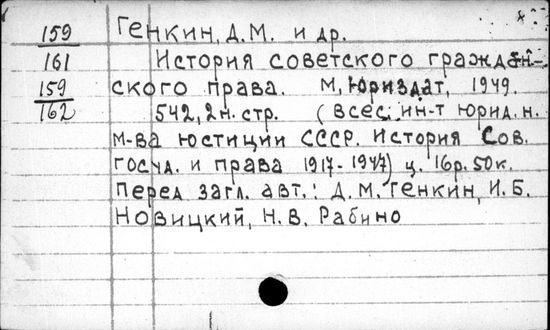 159 Генкин, Д.М. и др.
161 История советского граждан-
159 ского права. М, Юриздат, 1949.
162 542, 2 н. стр. (Всес. ин-т юрид. н.
м-ва юстиции СССР. История Сов.
госуд. и права 1917-1947) ц. 16р. 50к.
Перед загл. авт.: Д.М. Генкин, И.Б.
Новицкий, Н.В. Рабино